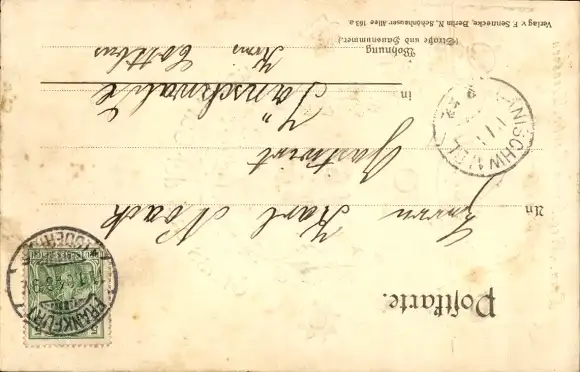 Postkarte.
An Herrn Karl Noack
Gastwirt
in Jänschwalde
Wohnung Kreis Cottbus
(Straße und Hausnummer.)
Verlag v. F. Sennecke, Berlin N. Schönhauser Allee 163 a.
FRANKFURT
(ODER)
JÄNSCHWALDE